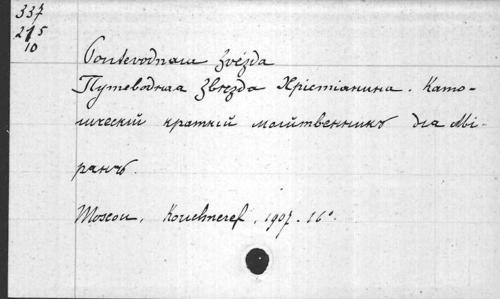 337
215
10
Poutevodnaia zvézda
Путеводная Звѣзда Христіанина. Като-
лическій краткій молитвенникъ для Мі-
рянъ.
Moscou, Kouchneref, 1907. 16°.